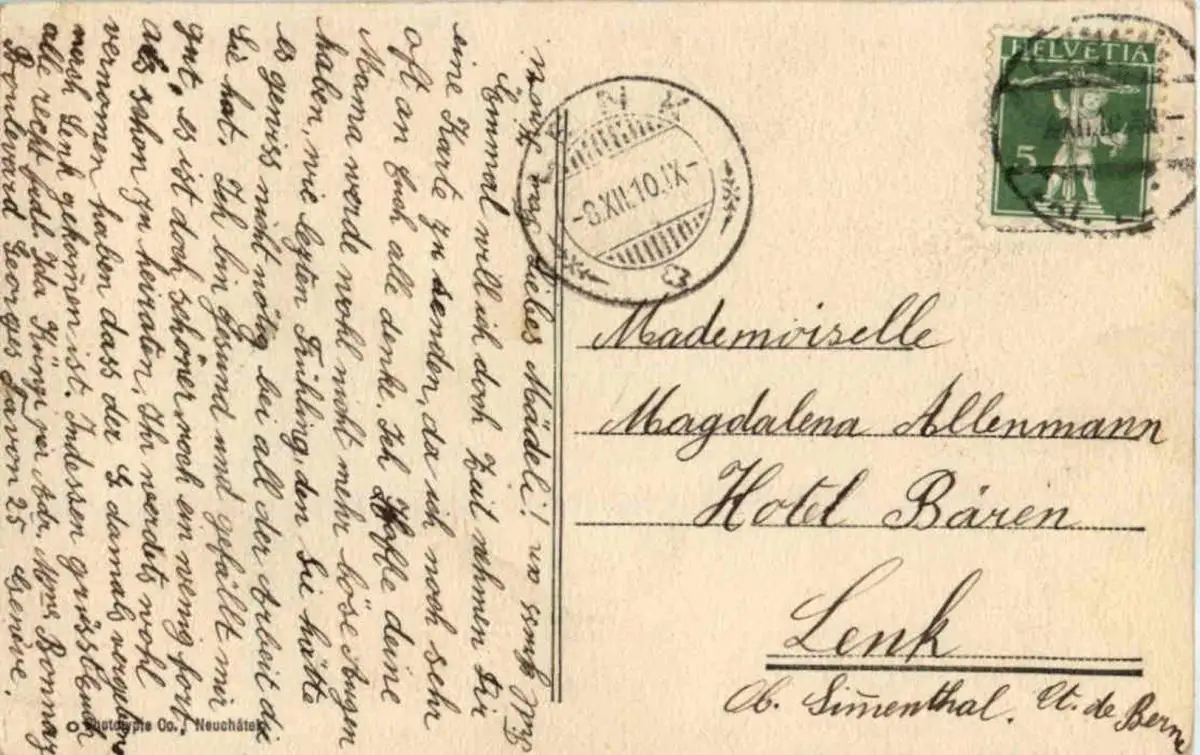 Liebes Mädeli!
Einmal will ich doch Zeit nehmen Dir
eine Karte zu senden, da ich noch sehr
oft an Euch alle denke. Ich Hoffe deine
Mama werde wohl nicht mehr böse Augen
haben, wie lezten Frühling, den Sie hätte
es gewiss nicht nötig bei all der Arbeit die
Sie hat. Ich bin gesund und gefällt mir
gut, es ist doch schöner noch ein wenig fort
als schon zu heiraten, Ihr werdets wohl
vernomen haben dass der G damals vergeben
nach Lenk gekom̄en ist. Indessen grüsst Euch
alle recht frdl. Ida Künzi per Adr. Mme Bonnaz
Boulevard Georges Favon 25 Genève.
LENK
-8.XII.10.IX-
HELVETIA
5
Mademoiselle
Magdalena Allenmann
Hotel Bären
Lenk
Ob. Sim̄enthal. Ct. de Berne
Phototypie Co., Neuchâtel